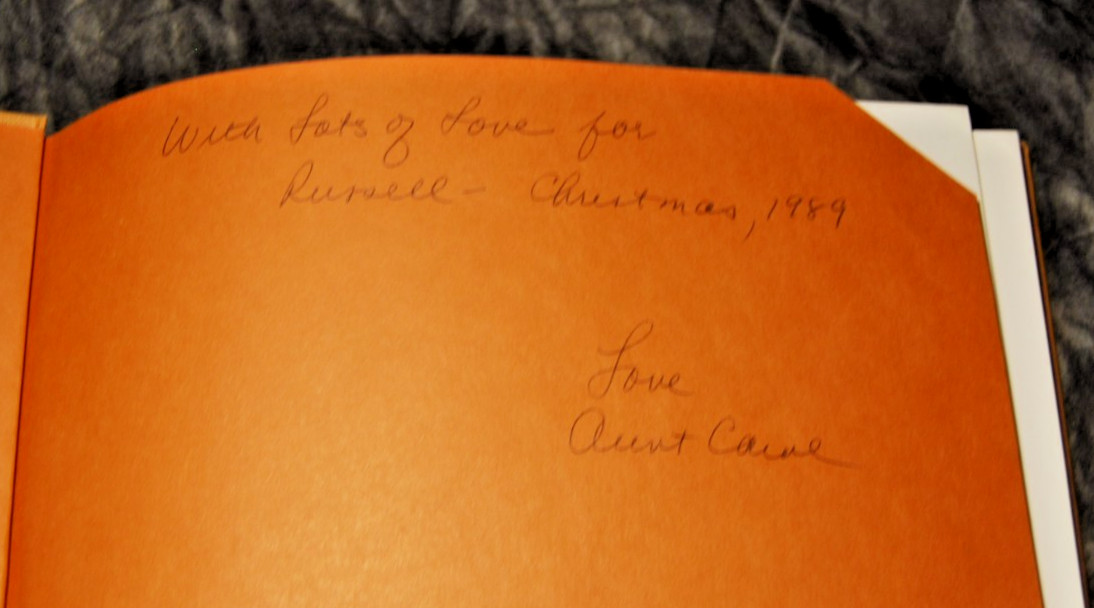 With Lots of Love for
Russell - Christmas, 1989
Love
Aunt Carol